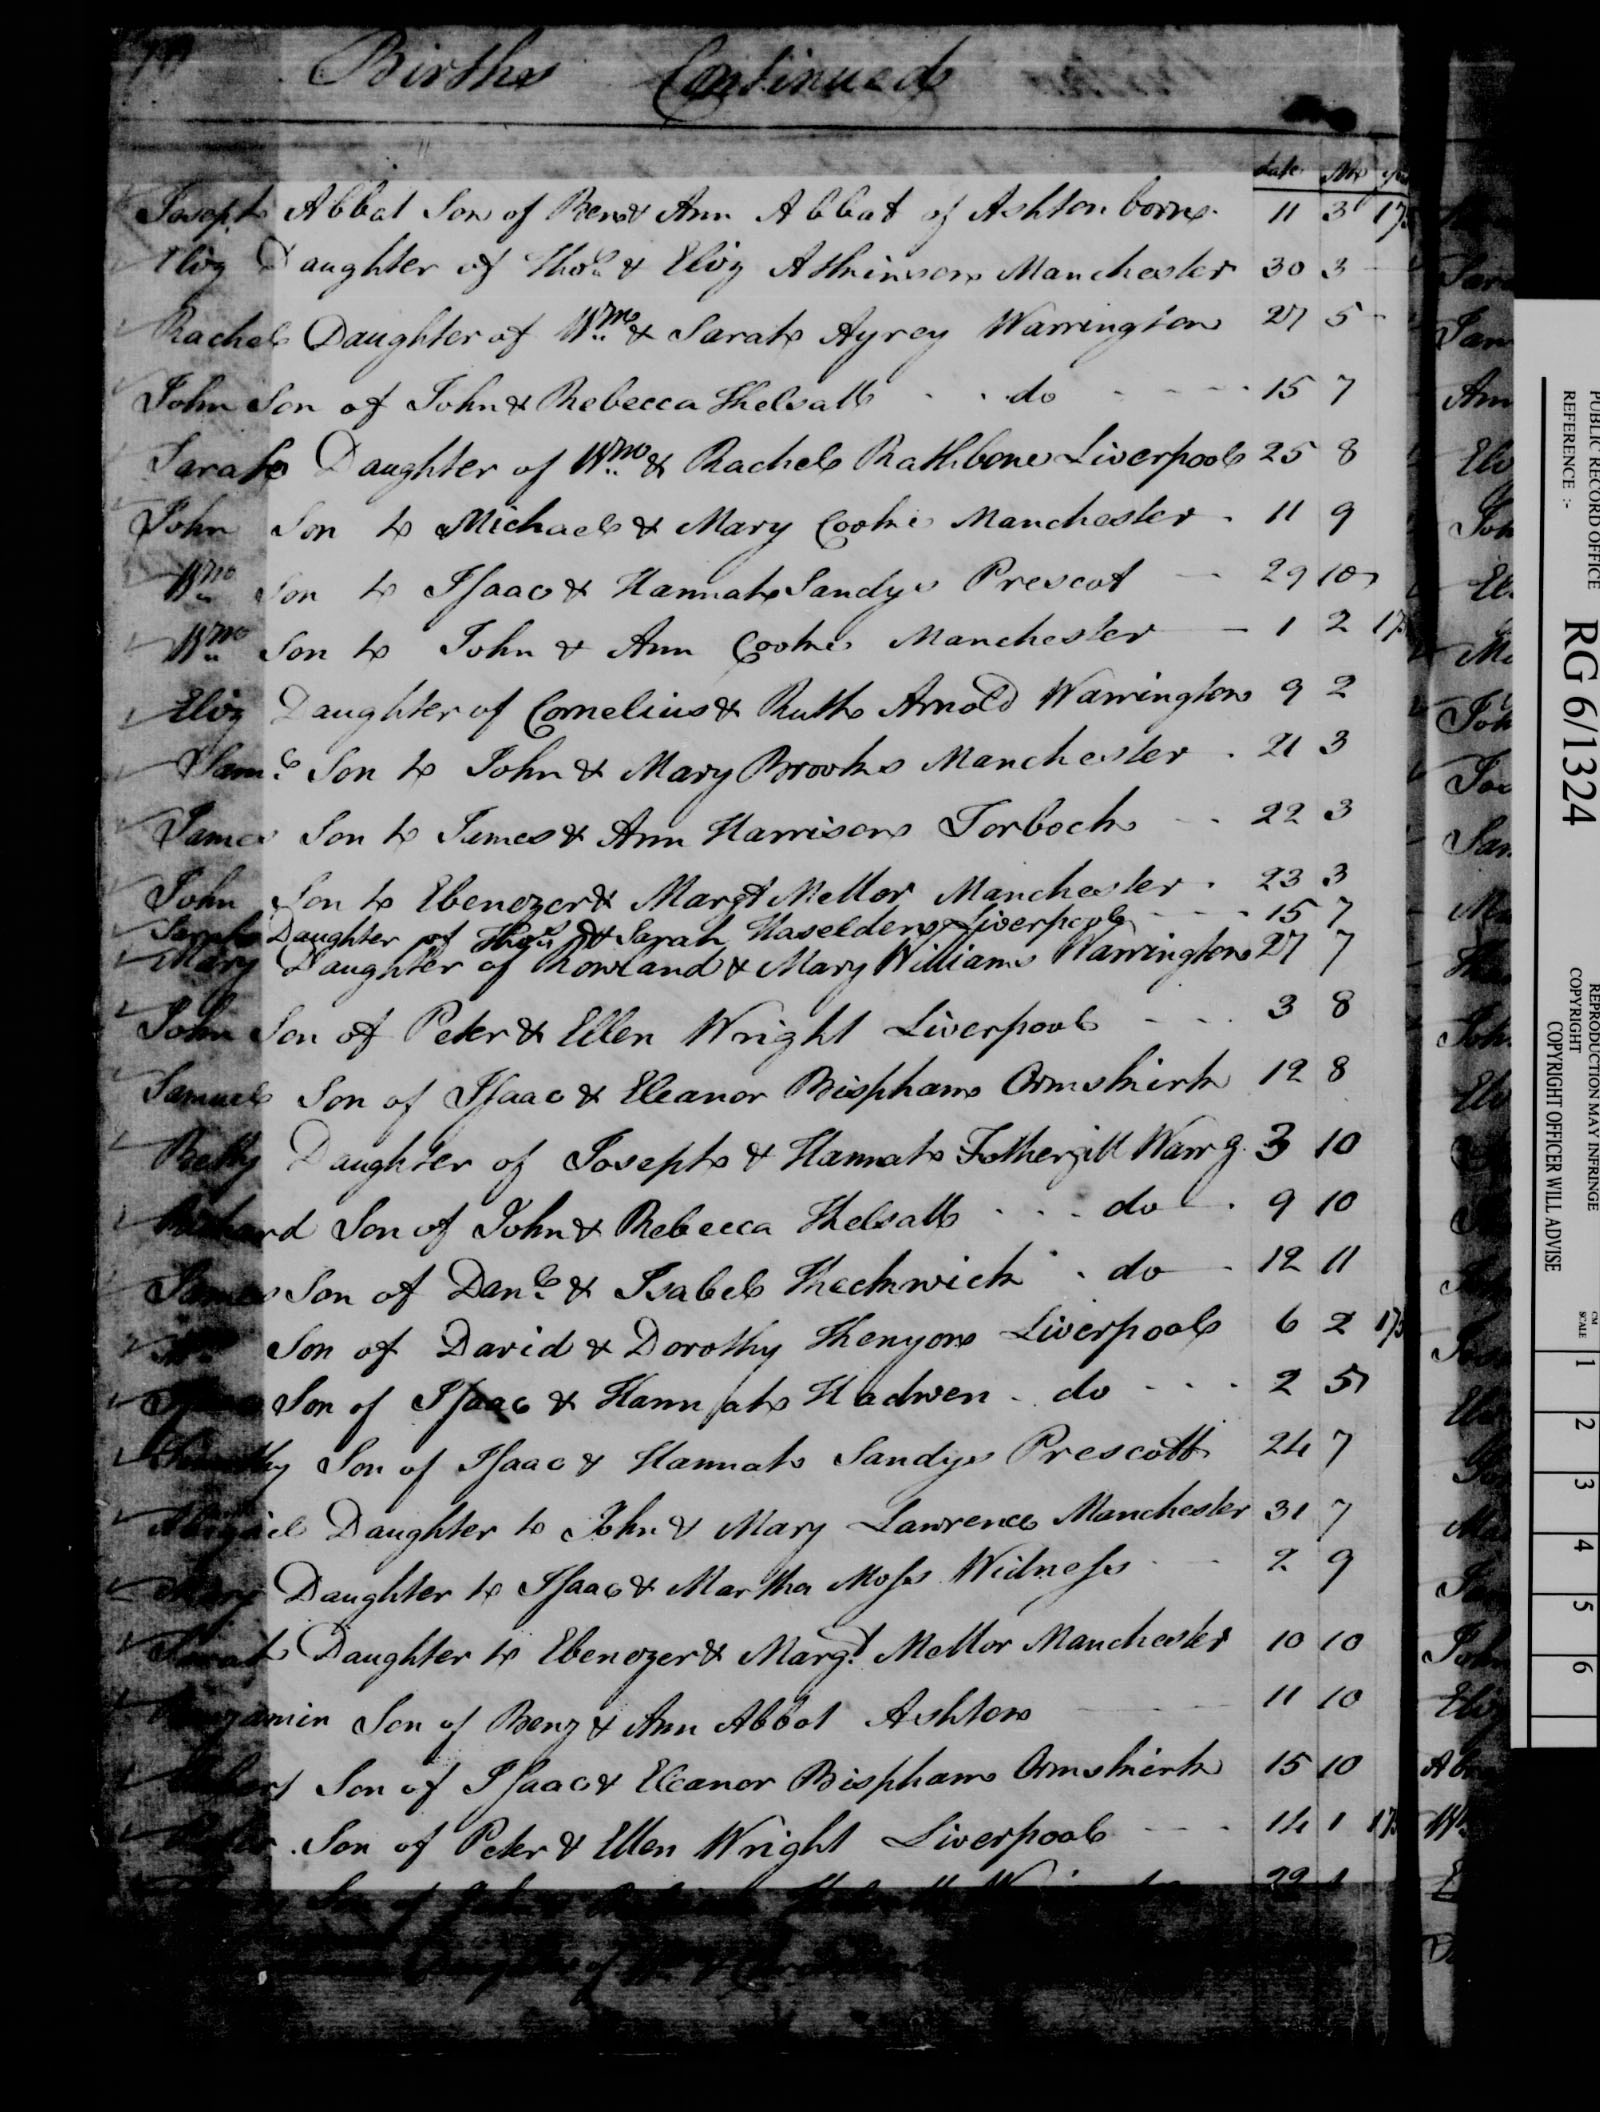 Births Continued
date Mo
Joseph Abbat Son of Benj & Ann Abbat of Ashton borne 11 3
Eliz Daughter of Thos & Eliz Atkinson Manchester 30 3
Rachel Daughter of Wm & Sarah Ayrey Warrington 27 5
John Son of John & Rebecca Kelsall do 15 7
Sarah Daughter of Wm & Rachel Rathbone Liverpool 25 8
John Son to Michael & Mary Cooke Manchester 11 9
Wm Son to Isaac & Hannah Sandys Prescot 29 10
Wm Son to John & Ann Cooke Manchester 1 2
Eliz Daughter of Cornelius & Ruth Arnold Warrington 9 2
Saml Son to John & Mary Brooks Manchester 21 3
James Son to James & Ann Harrison Torbock 22 3
John Son to Ebenezer & Margt Mellor Manchester 23 3
Sarah Daughter of Thos & Sarah Haselden Liverpool 15 7
Mary Daughter of Rowland & Mary Williams Warrington 27 7
John Son of Peter & Ellen Wright Liverpool 3 8
Samuel Son of Isaac & Eleanor Bispham Ormskirk 12 8
Betty Daughter of Joseph & Hannah Fothergill Warrg 3 10
Richard Son of John & Rebecca Kelsall do 9 10
James Son of Danl & Isabel Keckwick do 12 11
Wm Son of David & Dorothy Kenyon Liverpool 6 2
Isaac Son of Isaac & Hannah Hadwen do 2 5
Timothy Son of Isaac & Hannah Sandys Prescott 24 7
Abigail Daughter to John & Mary Lawrence Manchester 31 7
Mary Daughter to Isaac & Martha Moss Widness 2 9
Sarah Daughter to Ebenezer & Margt Mellor Manchester 10 10
Benjamin Son of Benj & Ann Abbot Ashton 11 10
Son of Isaac & Eleanor Bispham Ormskirk 15 10
Peter Son of Peter & Ellen Wright Liverpool 14 1
Son of 29 1
Daughter of Wm &
PUBLIC RECORD OFFICE
REFERENCE :-
RG 6/1324
REPRODUCTION MAY INFRINGE
COPYRIGHT
COPYRIGHT OFFICER WILL ADVISE
CM
SCALE
1 2 3 4 5 6